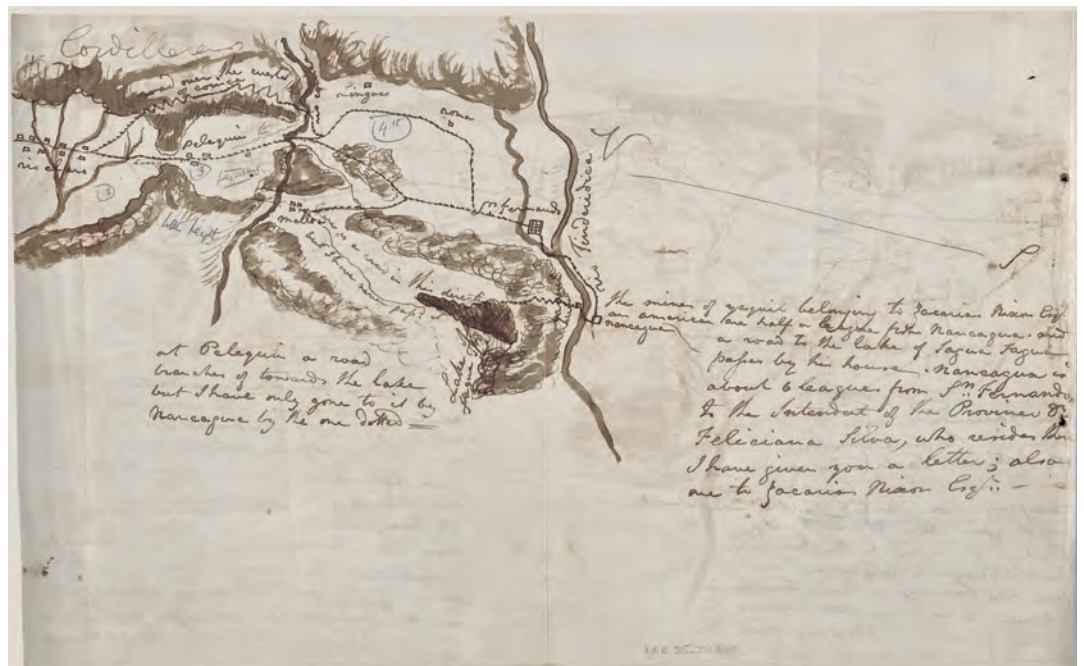 Cordilleras
road over the cuesta
of comica
Lingues
roma
4th
pelequin
3
rio claro
2
little height
Sn Fernando
Rio Tinderidica
malloa
there is a road in this direct
but I have never
Lake
Nancagua
at Pelequin a road
branches of towards the lake
but I have only gone to it by
Nancagua by the one dotted
The mines of yaquil belonging to Zacarias Nixon Esqr.
an american are half a league from Nancagua. and
a road to the lake of Tagua Tagua
passes by his house. Nancagua is
about 6 leagues from Sn. Fernando,
to the Intendent of the Province Dn
Feliciana Silva, who resides there
I have given you a letter; also
one to Zacarias Nixon Esqr.: —